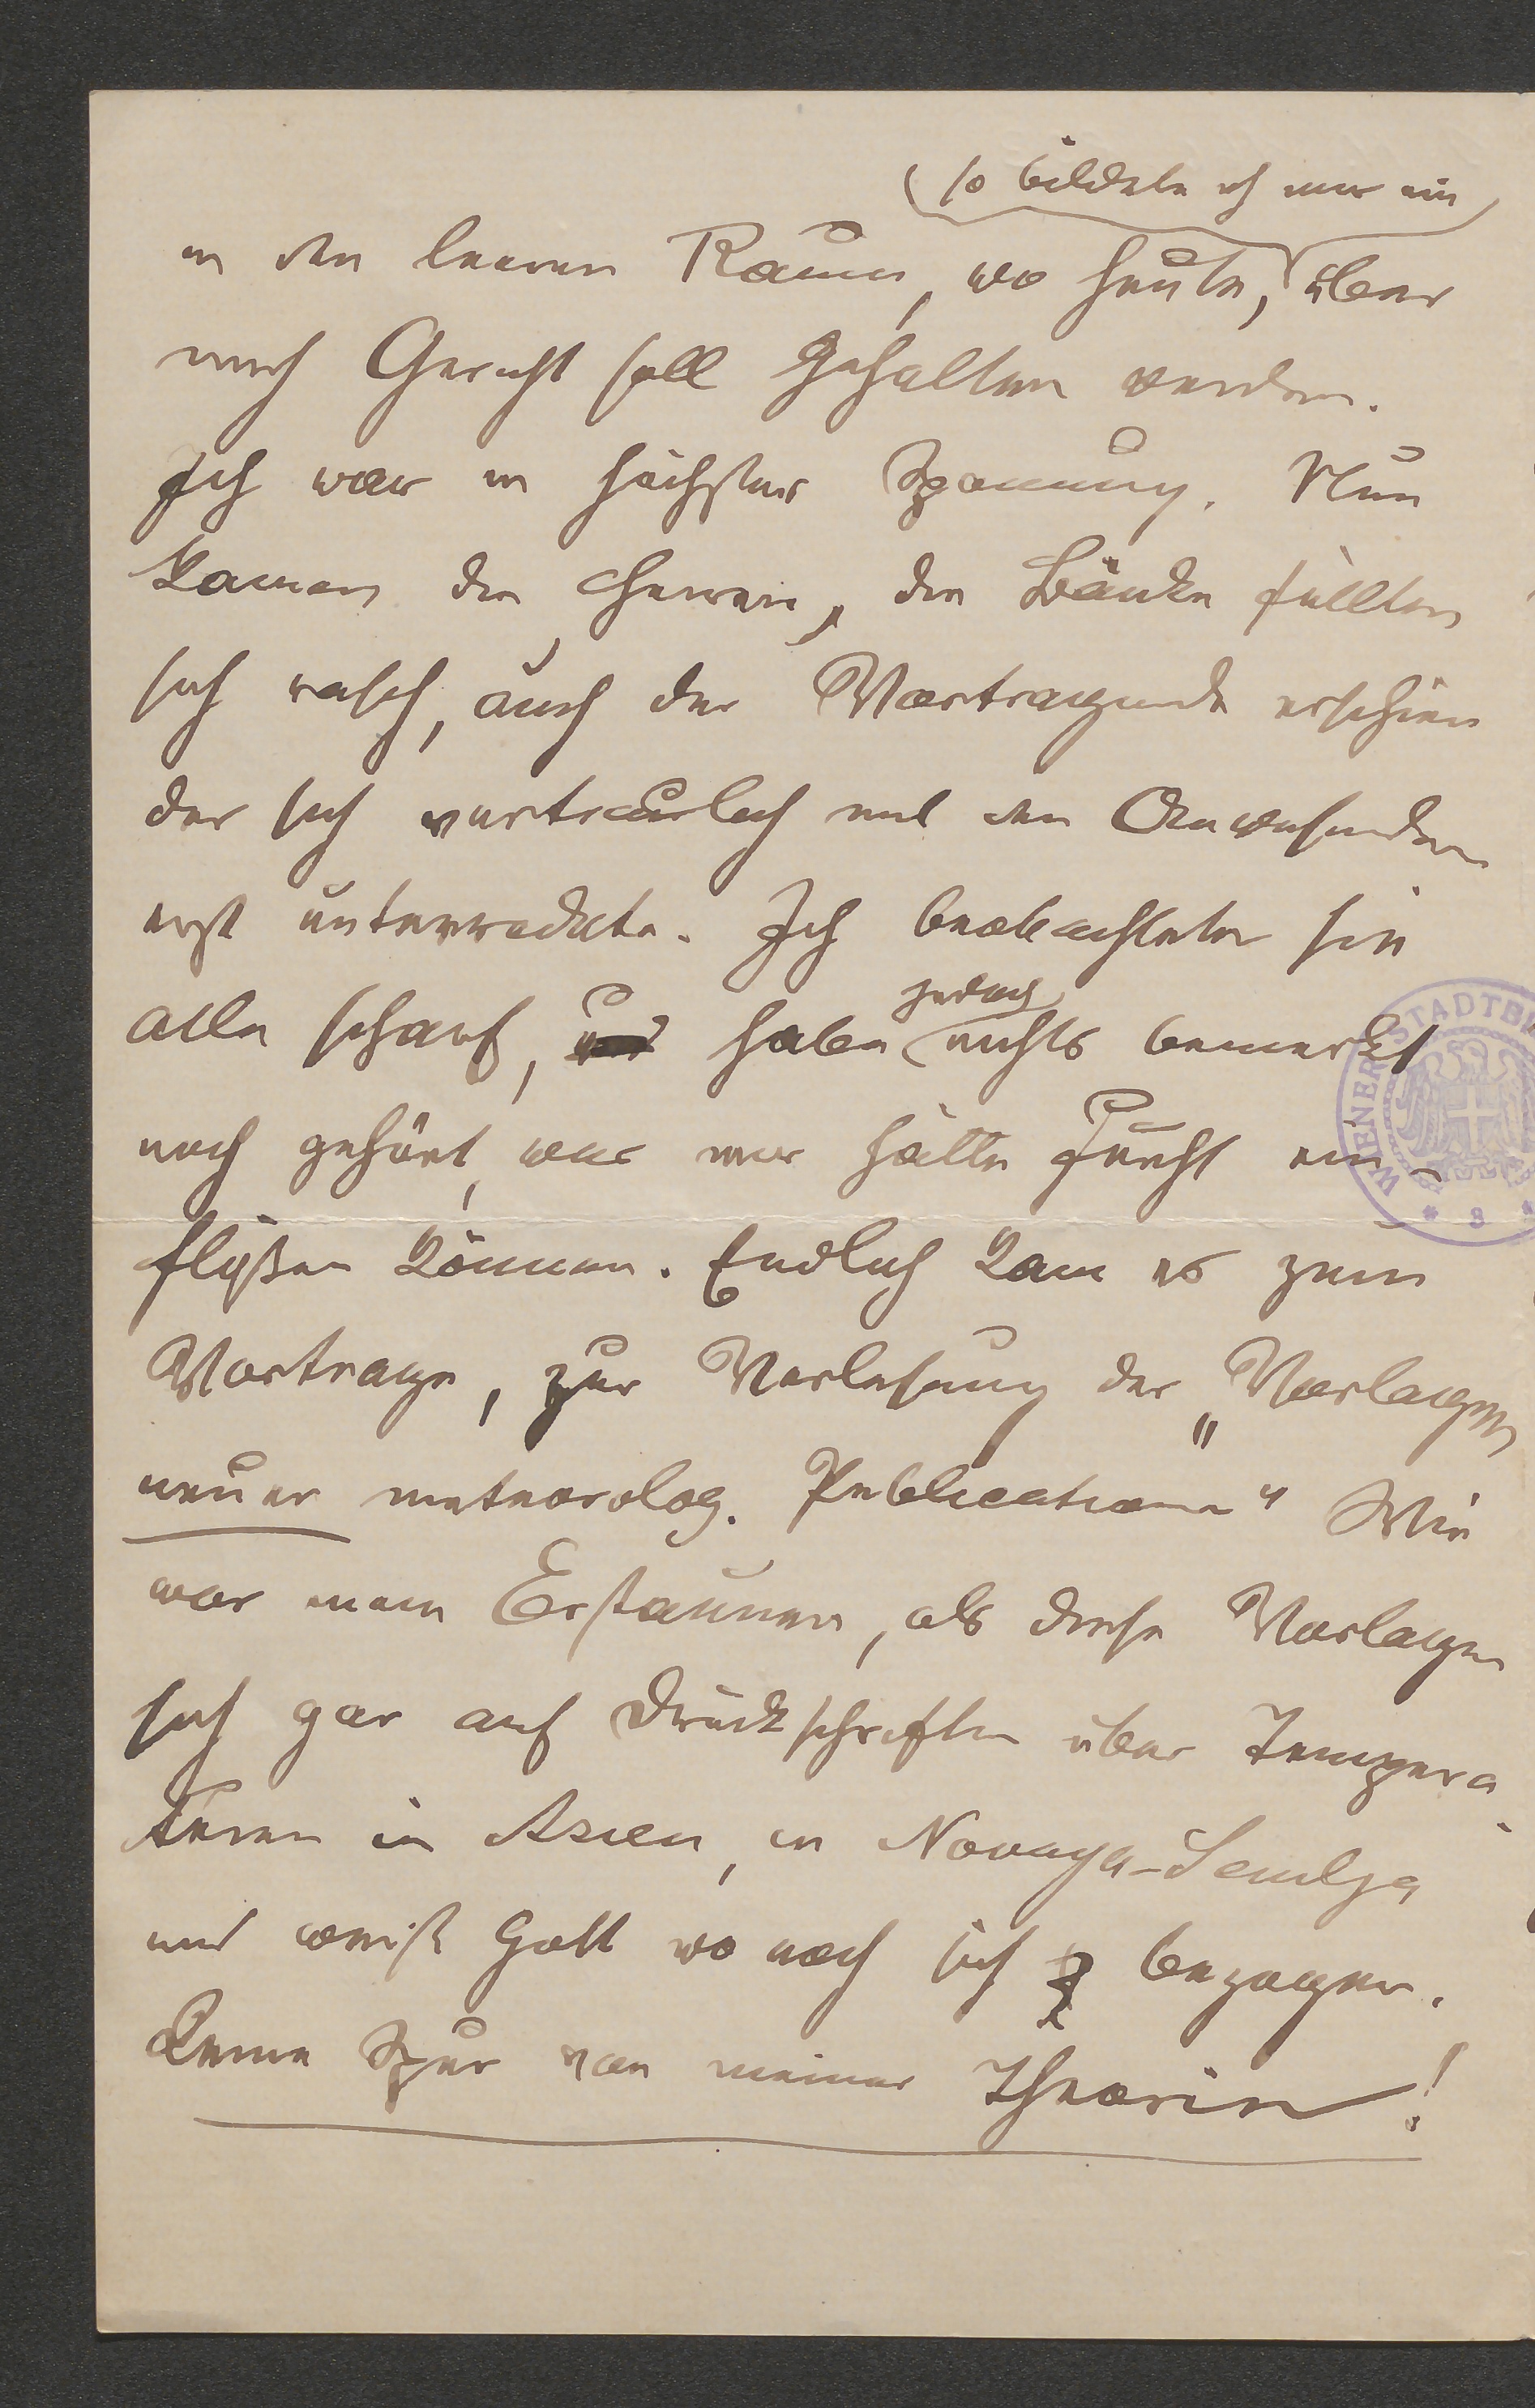 so bildete ich mir ein
in den leeren Raum, wo heute, über
mich Gericht soll gehalten werden.
Ich war in höchster Spannung. Nun
kamen die Herren, die Bänke füllten
sich rasch, auch der Vortragende erschien
der sich vertraulich mit den Anwesenden
erst unterredete. Ich beobachtete sie
jedoch
alle scharf, und habe nichts bemerkt
noch gehört, was mir hätte Furcht ein-
flößen können. Endlich kam es zum
Vortrage, zur Verlesung der „Vorlagen
neuer meteorolog. Publicationen“ Wie
war mein Erstaunen, als diese Vorlagen
sich gar auf Druckschriften über Tempera-
turen in Asien, in Novaya-Semlja
und weiß Gott wo noch sich bezogen.
Keine Spur von meiner Theorie!
WIENER STADTB
* 3 *